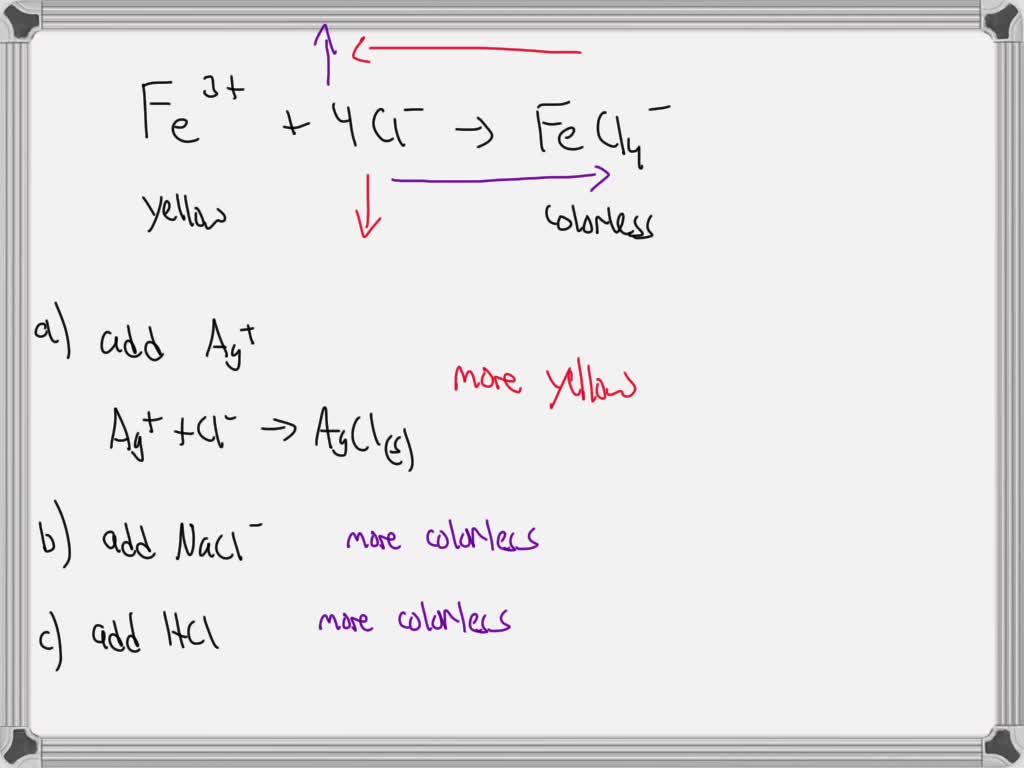 Fe³⁺ + 4Cl⁻ → FeCl₄⁻
yellow colorless
a) add Ag⁺
more yellow
Ag⁺ + Cl⁻ → AgCl(s)
b) add NaCl⁻ more colorless
c) add HCl more colorless